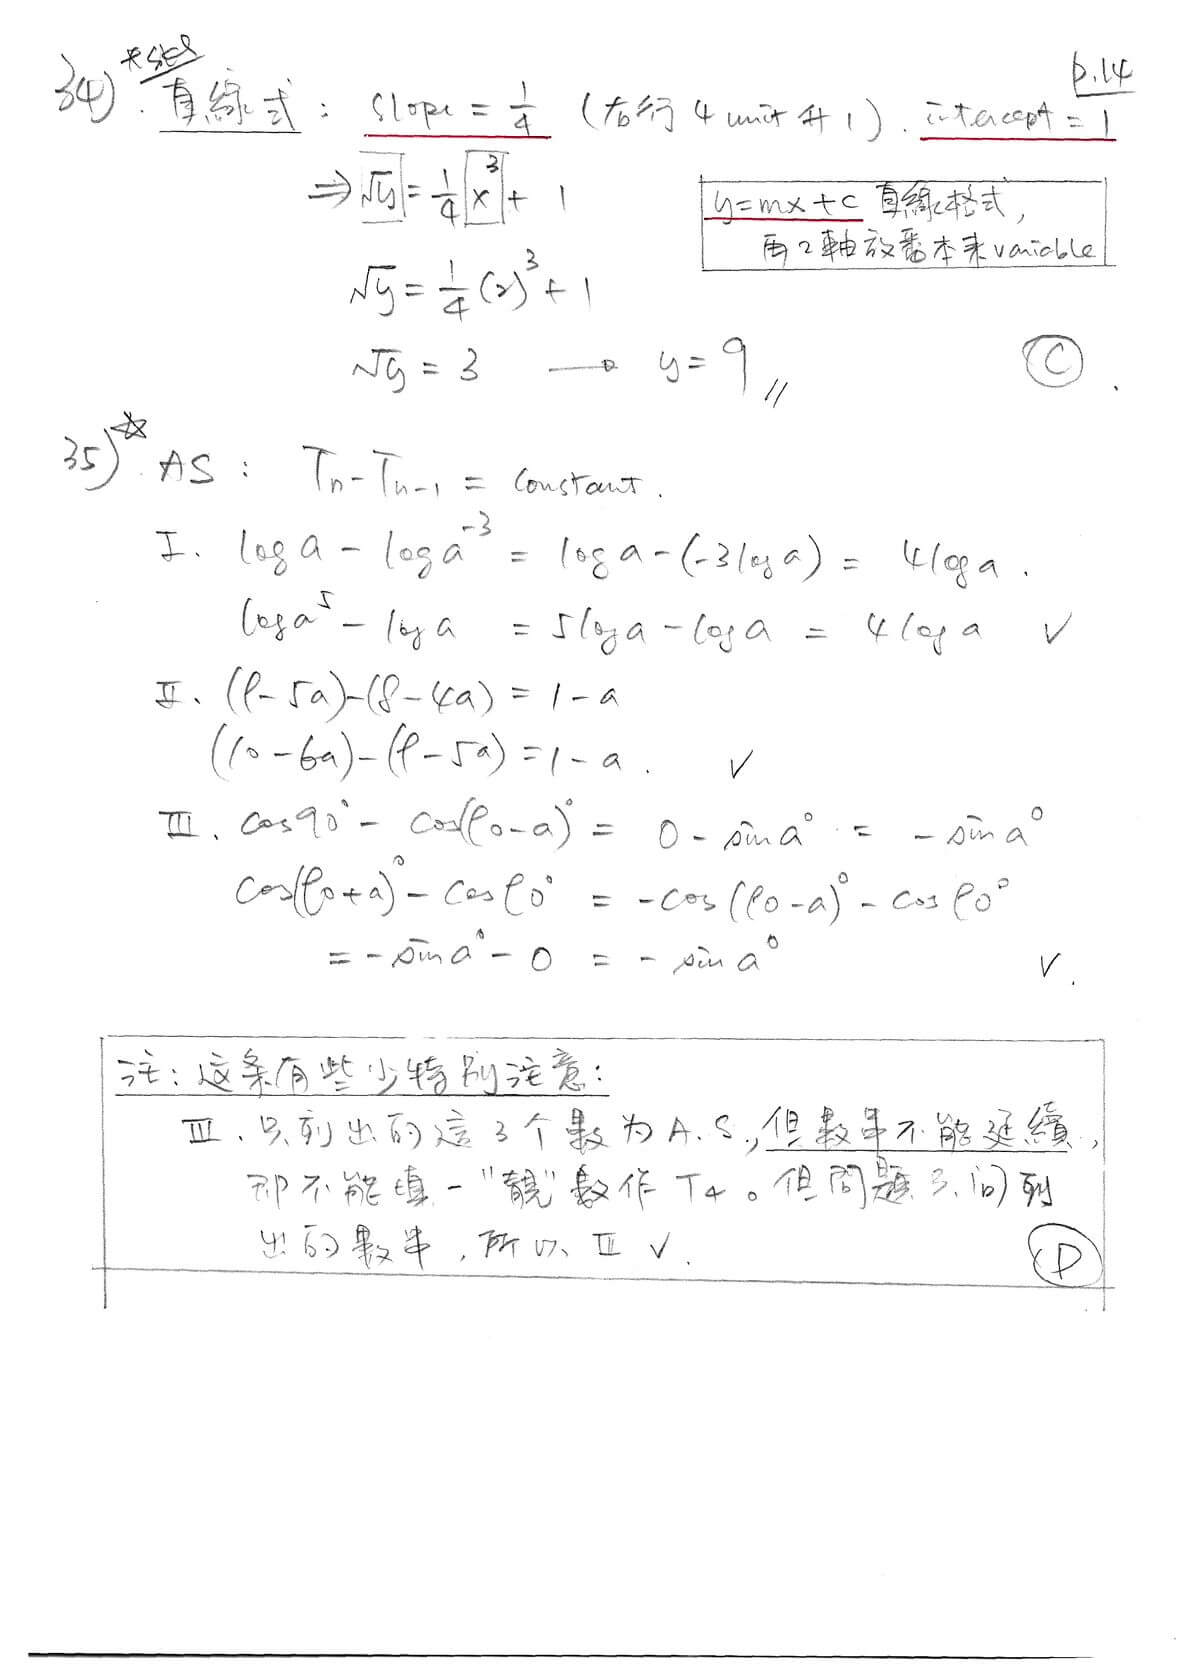 p.14
34) 直線式 : slope = 1/4 (右行 4 unit 升 1). intercept = 1
⇒ √y = 1/4 x³ + 1
y=mx+c 直線格式,
再2軸放番本來variable
√y = 1/4 (2)³ + 1
√y = 3 → y = 9 //
C
35) ☆ AS : Tn - Tn-1 = constant.
I. log a - log a⁻³ = log a - (-3 log a) = 4 log a.
log a⁵ - log a = 5 log a - log a = 4 log a ✓
II. (9-5a)-(8-4a) = 1-a
(10-6a)-(9-5a) = 1-a. ✓
III. cos 90° - cos(90-a)° = 0 - sin a° = - sin a°
cos(90+a)° - cos 90° = -cos(90-a)° - cos 90°
= - sin a° - 0 = - sin a° ✓.
注: 这条有些少特別注意:
III. 只列出的這3个數为A.S., 但數串不能延續,
即不能填一“靚”數作 T4。但問題只问列
出的數串, 所以 III ✓.
D